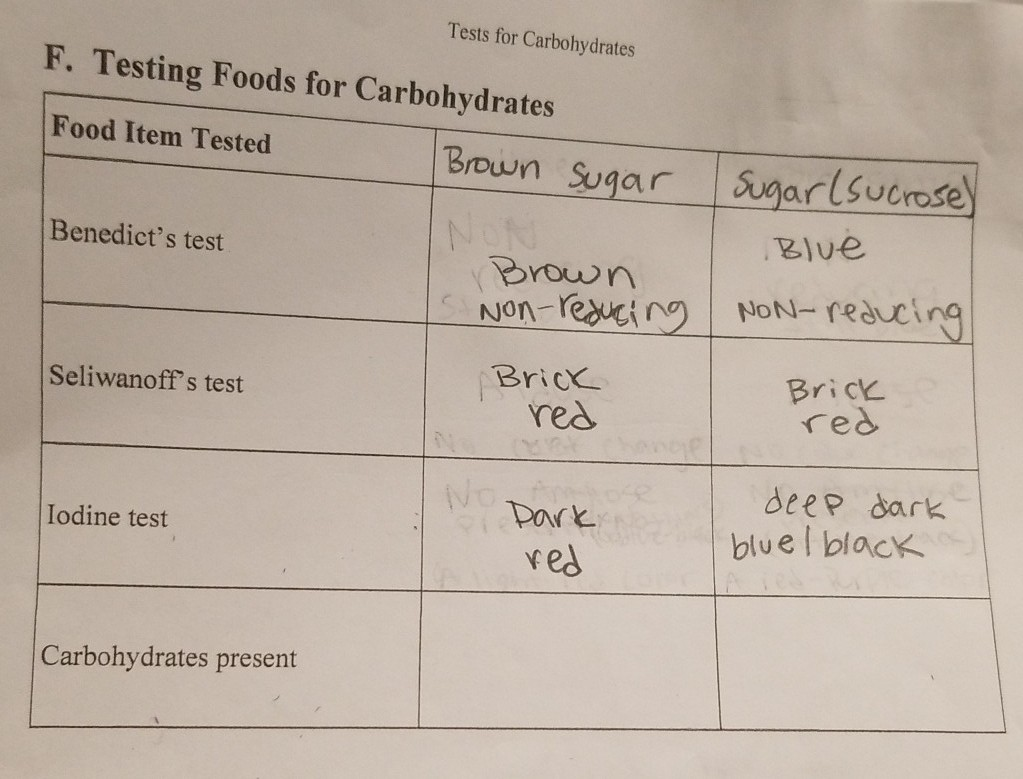 Tests for Carbohydrates
F. Testing Foods for Carbohydrates
Food Item Tested
Brown Sugar
Sugar (Sucrose)
Benedict's test
Brown
Non-reducing
Blue
NON-reducing
Seliwanoff's test
Brick
red
Brick
red
Iodine test
Dark
red
deep dark
blue/black
Carbohydrates present